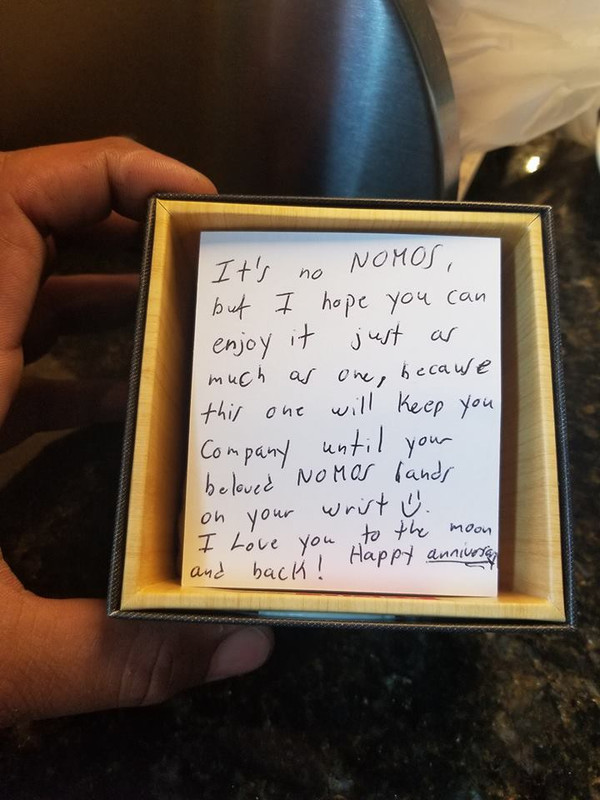 It's no NOMOS,
but I hope you can
enjoy it just as
much as one, because
this one will keep you
Company until your
beloved NOMOS lands
on your wrist
I Love you to the moon
and back! Happy anniversary